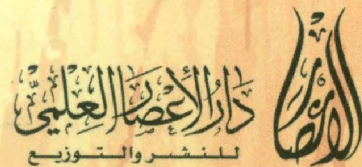 دَارُ الإِعْصَارِ العِلْمِيِّ
للنشر والتوزيع
الإعصار